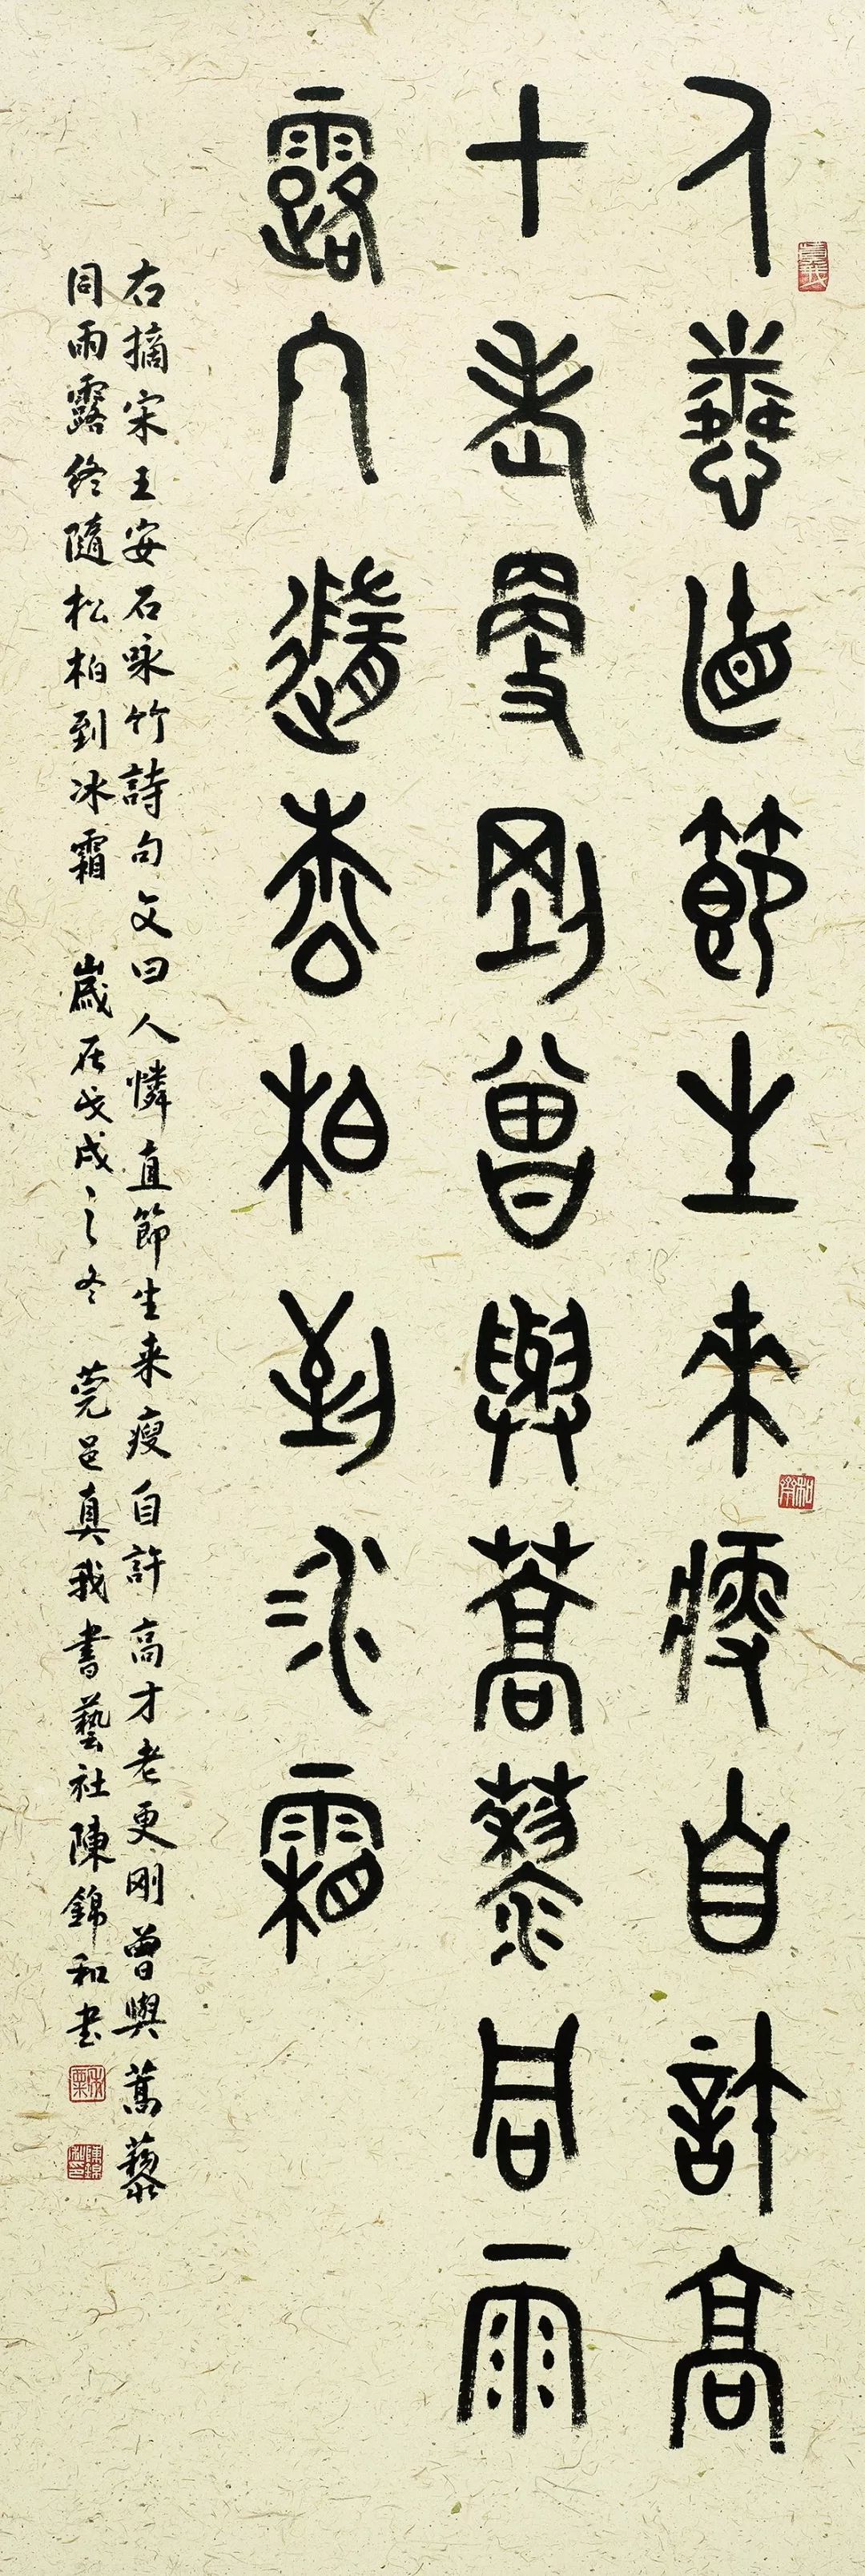 人憐直節生來瘦自許高
才老更剛曾與蒿藜同雨
露終隨松柏到冰霜
右摘宋王安石咏竹詩句文曰人憐直節生来瘦自許高才老更刚曾與蒿藜
同雨露終隨松柏到冰霜 歲在戊戌之冬 莞邑真我書藝社陳錦和书